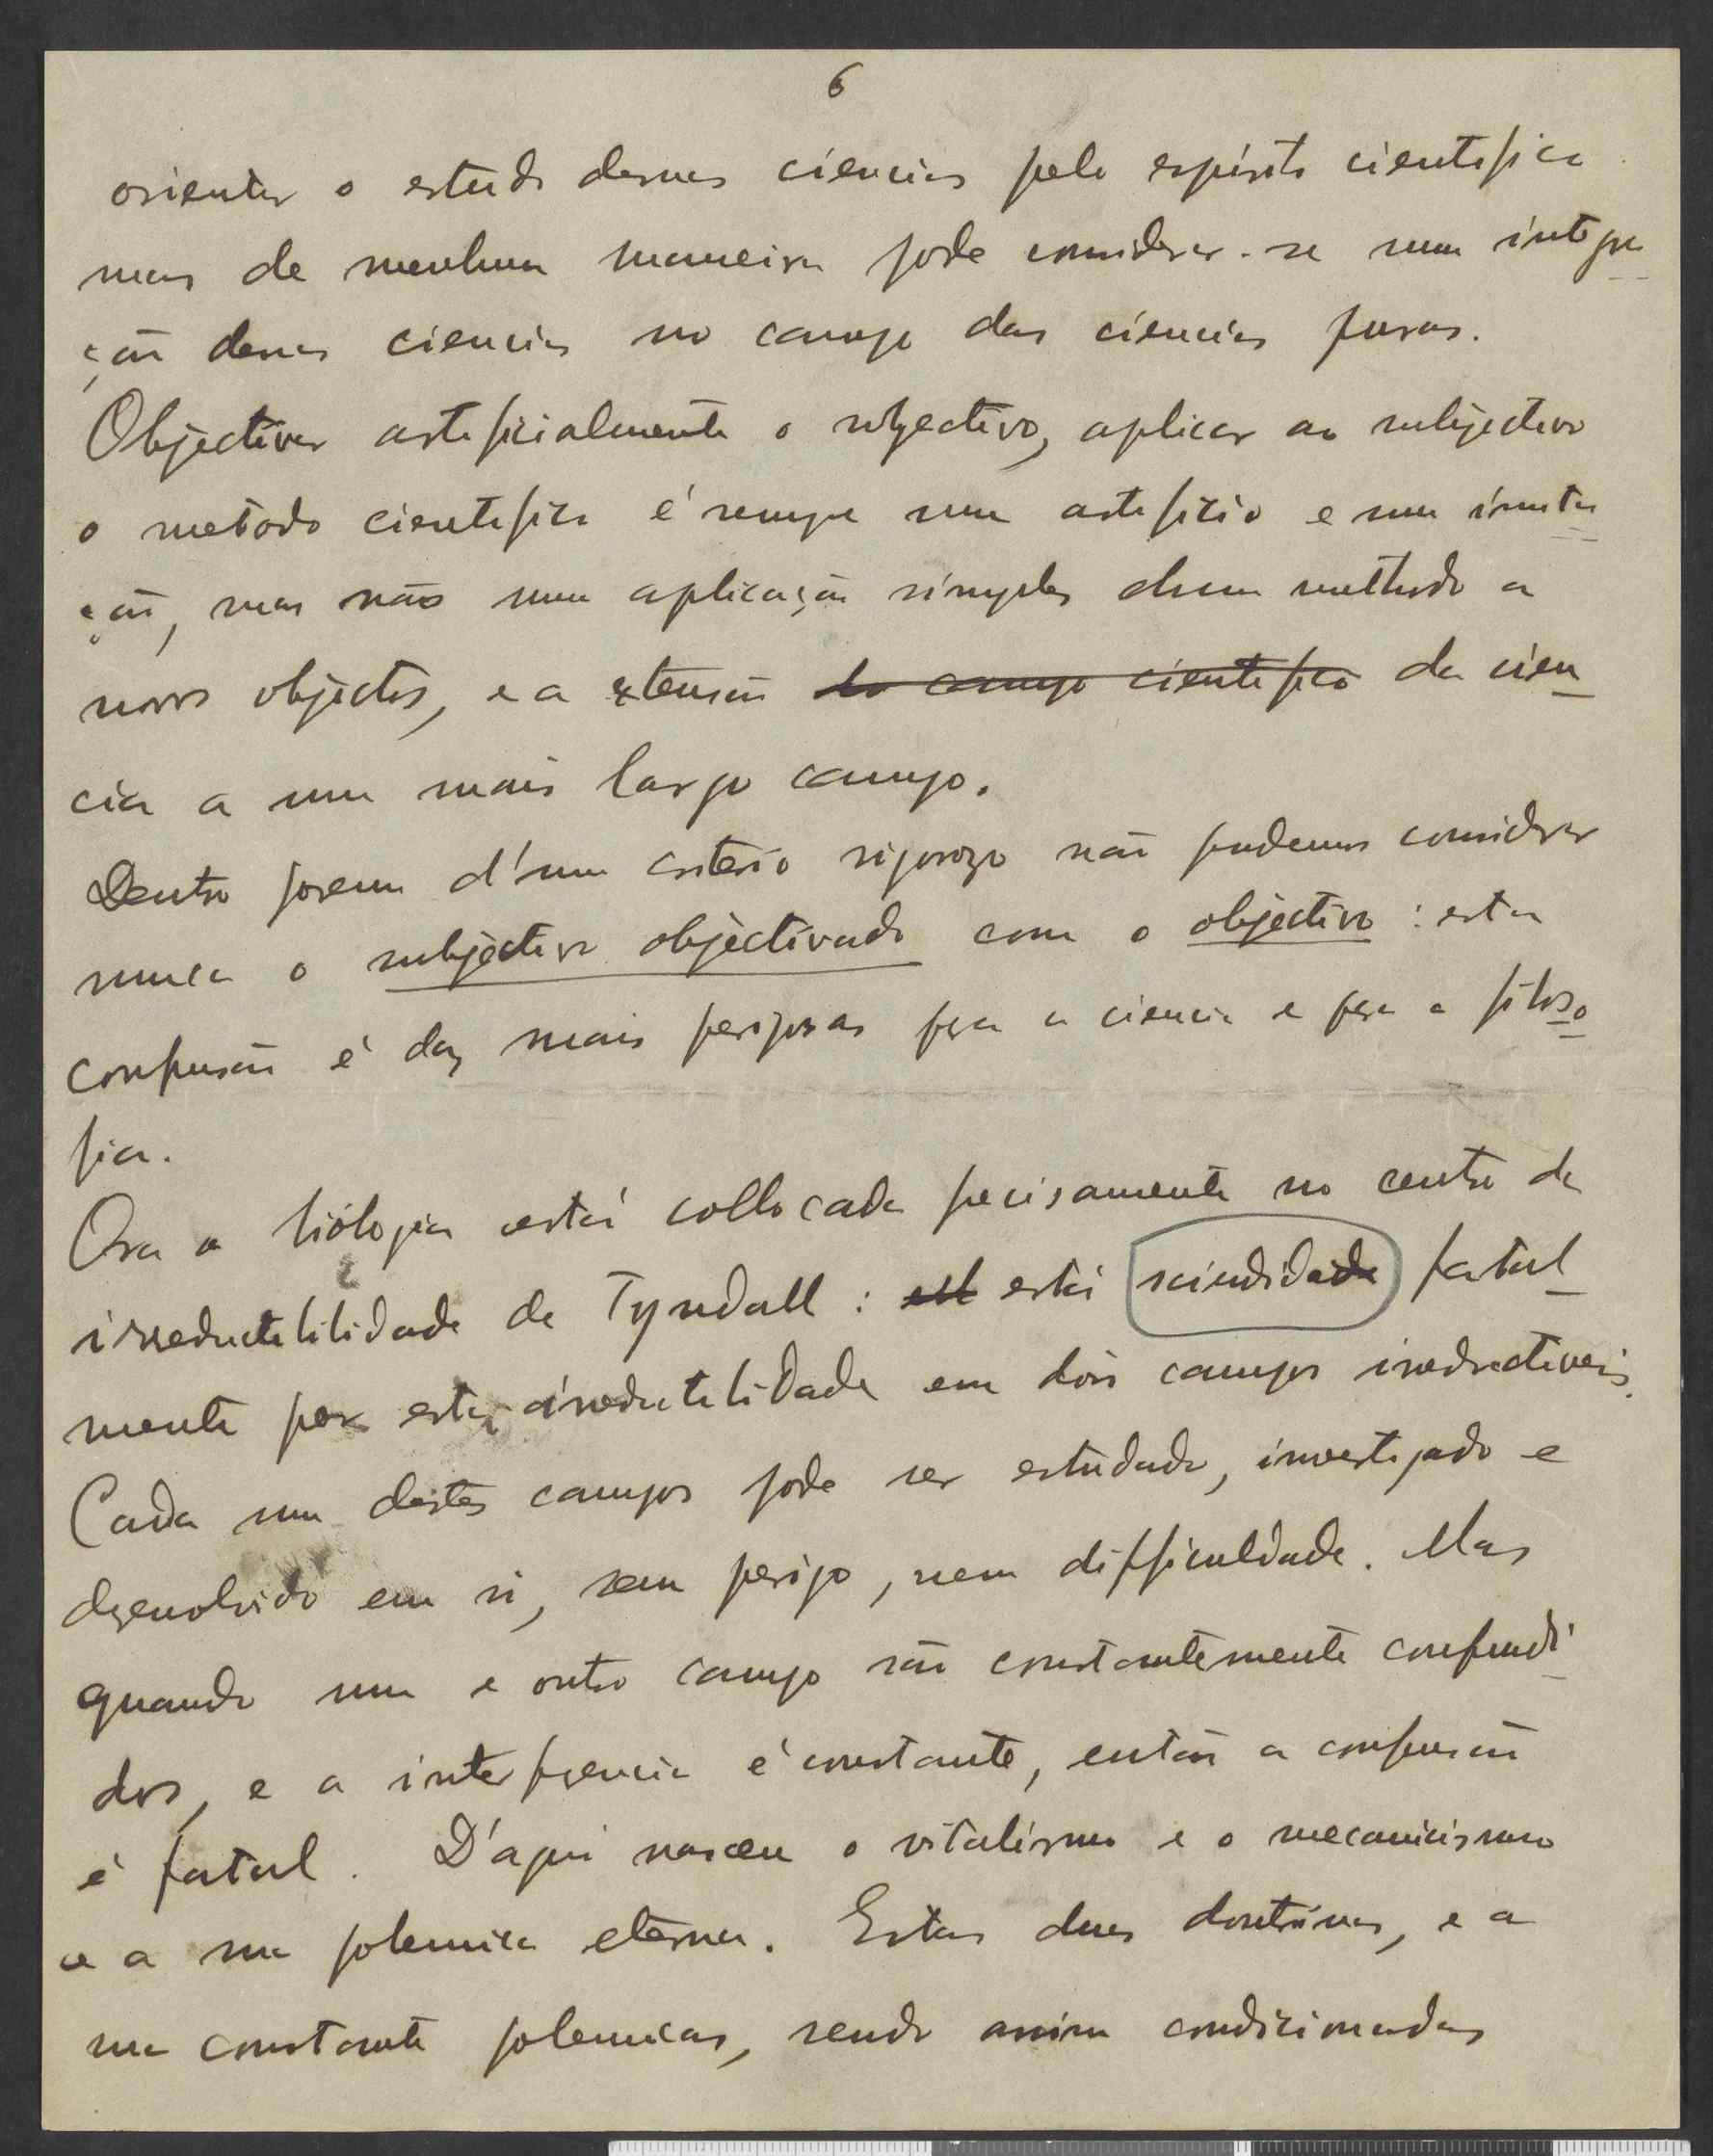 6
orientar o estudo dessas ciencias pelo espirito cientifico
mas de nenhuma maneira pode considerar-se uma integra
ção dessas ciencias no campo das ciencias puras.
Objectivar artificialmente o subjectivo, aplicar ao subjectivo
o metodo cientifico é sempre um artificio e uma imita
ção, mas não uma aplicação simples dum methodo a
novos objectos, e a extensão do campo cientifico da cien
cia a um mais largo campo.
Dentro porem d'um criterio rigorozo não podemos considerar
nunca o subjectivo objectivado com o objectivo : esta
confusão é das mais perigosas pera a ciencia e pera a filoso
fia.
Ora a biologia está collocada precisamente no centro da
irreductibilidade de Tyndall : est está scindidade fatal
mente por esta irreductibilidade em dois campos irreductiveis.
Cada um destes campos pode ser estudado, investigado e
dezenvolvido em si, sem perigo, nem difficuldade. Mas
quando um e outro campo são constantemente confundi
dos, e a interferencia é constante, então a confusão
é fatal. D'aqui nasceu o vitalismo e o mecanicismo
e a sua polemica eterna. Estas duas doutrinas, e a
sua constante polemicas, sendo assim condicionadas